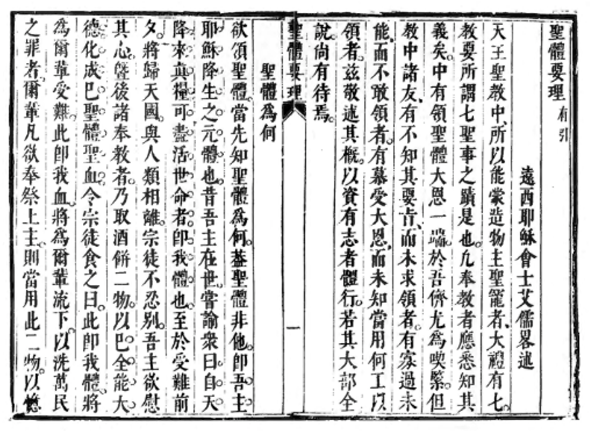 聖體要理
遠西耶穌會士艾儒畧述
天主聖教中、所以能蒙造物主聖寵者、大禮有七
教要所謂七聖事之蹟是也。凡奉教者應悉知其
義矣。中有領聖體大恩一端、於吾儕尤為喫緊。但
教中諸友、有不知其要旨、而未求領者、有寡過未
能而不敢領者。有慕受大恩、而未知當用何工以
領者。兹敬述其概、以資有志者體行。若其大部全
說尚有待焉。
聖體要理
一
聖體為何
欲領聖體、當先知聖體為何。葢聖體非他、卽吾主
耶穌降生之元體也。昔吾主在世、嘗諭衆曰、自天
降來眞糧、可畫活世命者、卽我體也。至於受難前
夕、將歸天國、與人類相離、宗徒不忍別。吾主欲慰
其心、曁後諸奉教者、乃取酒餅二物、以己全能大
德、化成己聖體聖血、令宗徒食之曰、此卽我體、將
為爾輩受難。此卽我血、將為爾輩流下、以洗萬民
之罪者。爾輩凡欲奉祭上主、則當用此二物、以憶